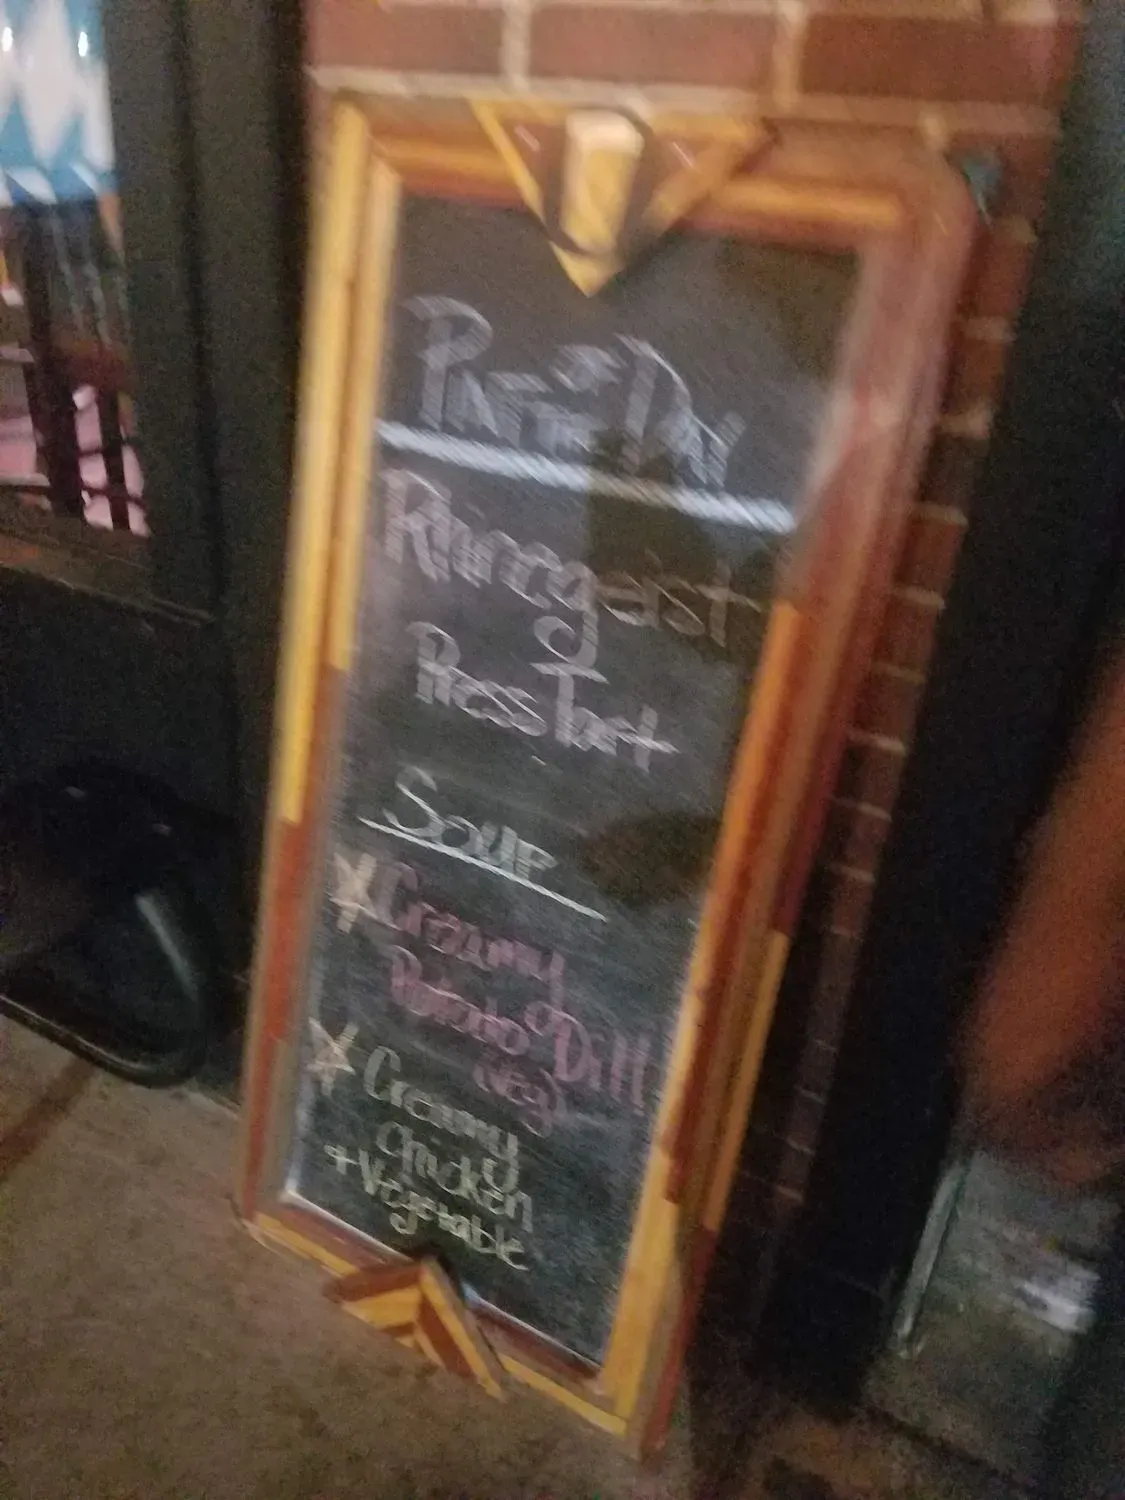 Pint of the Day
Rhinegeist
Press Tart
Soup
Creamy
Potato Dill!
(veg)
Creamy
Chicken
+ Vegetable